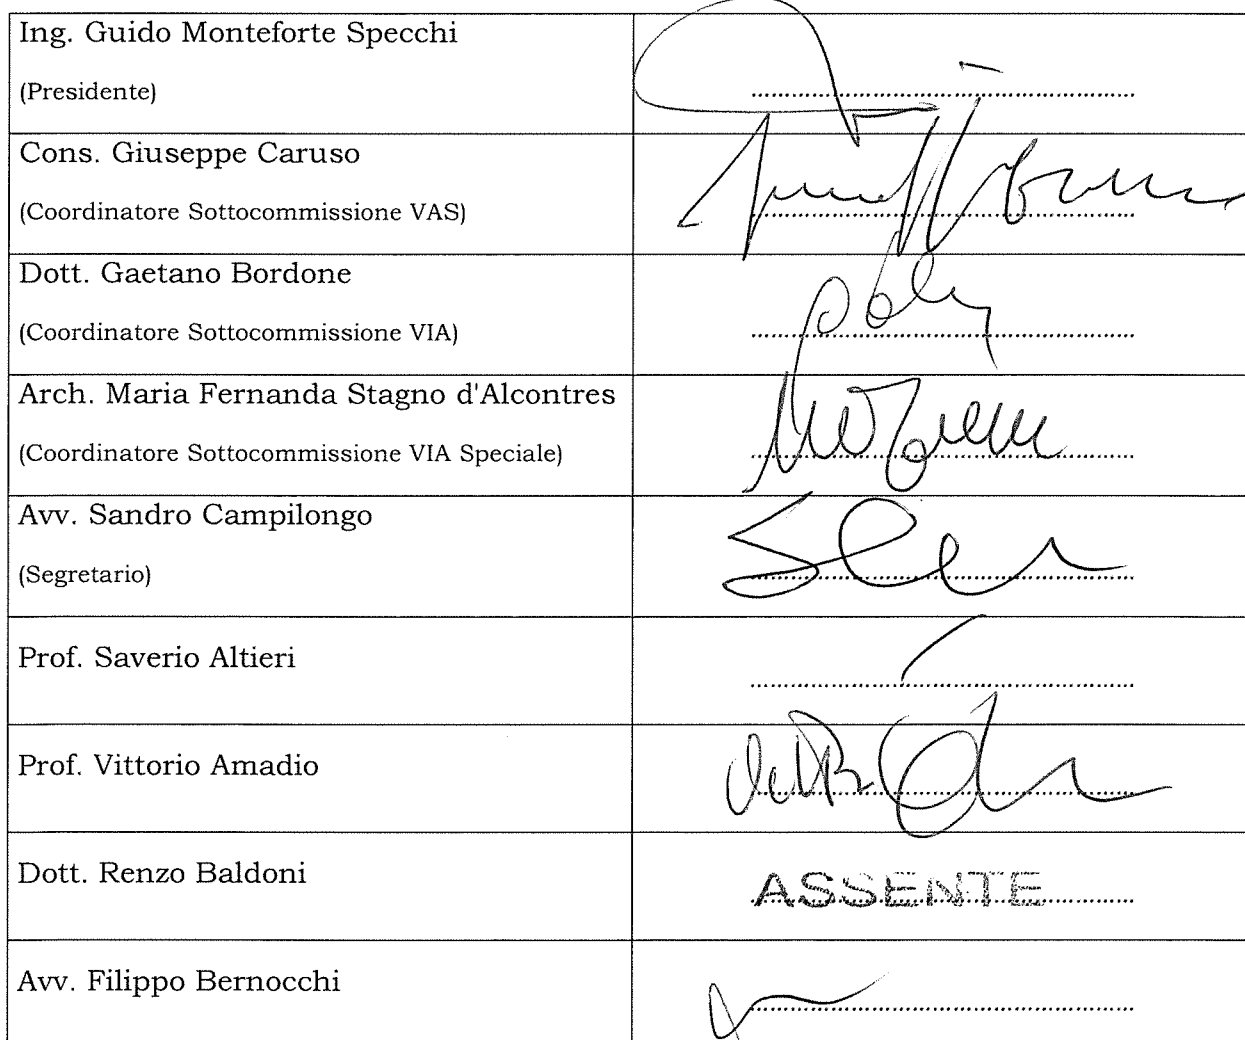 Ing. Guido Monteforte Specchi
(Presidente)
Cons. Giuseppe Caruso
(Coordinatore Sottocommissione VAS)
Dott. Gaetano Bordone
(Coordinatore Sottocommissione VIA)
Arch. Maria Fernanda Stagno d'Alcontres
(Coordinatore Sottocommissione VIA Speciale)
Avv. Sandro Campilongo
(Segretario)
Prof. Saverio Altieri
Prof. Vittorio Amadio
Dott. Renzo Baldoni
ASSENTE
Avv. Filippo Bernocchi